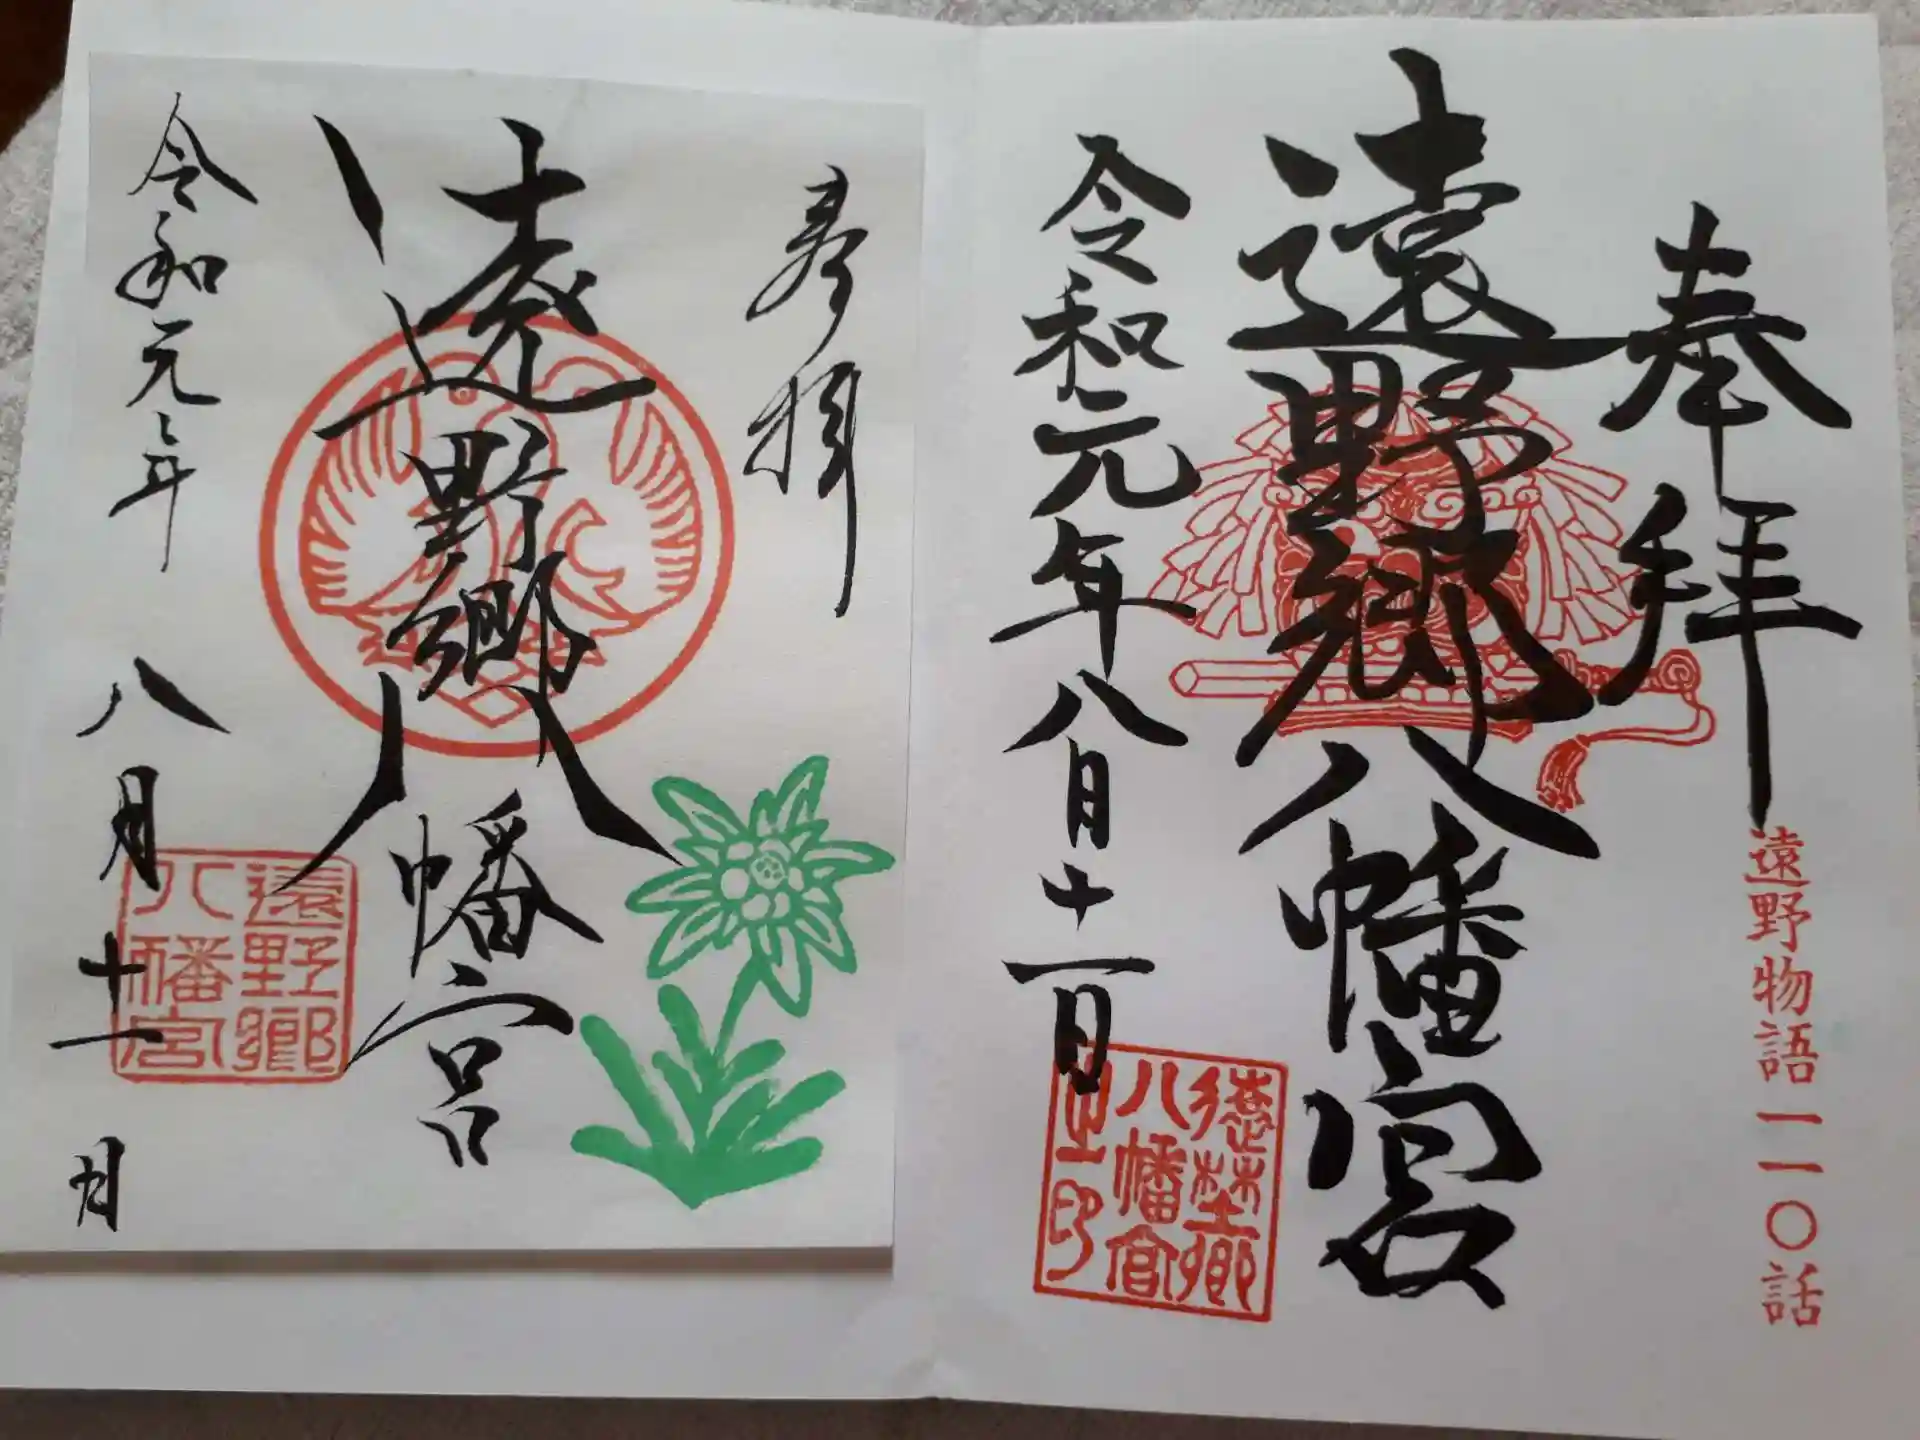 奉拝
遠野物語一一〇話
遠野郷八幡宮
令和元年八月十一日
遠野郷
八幡宮
参拝
遠野郷八幡宮
令和元年
八月十一日
遠野郷
八幡宮